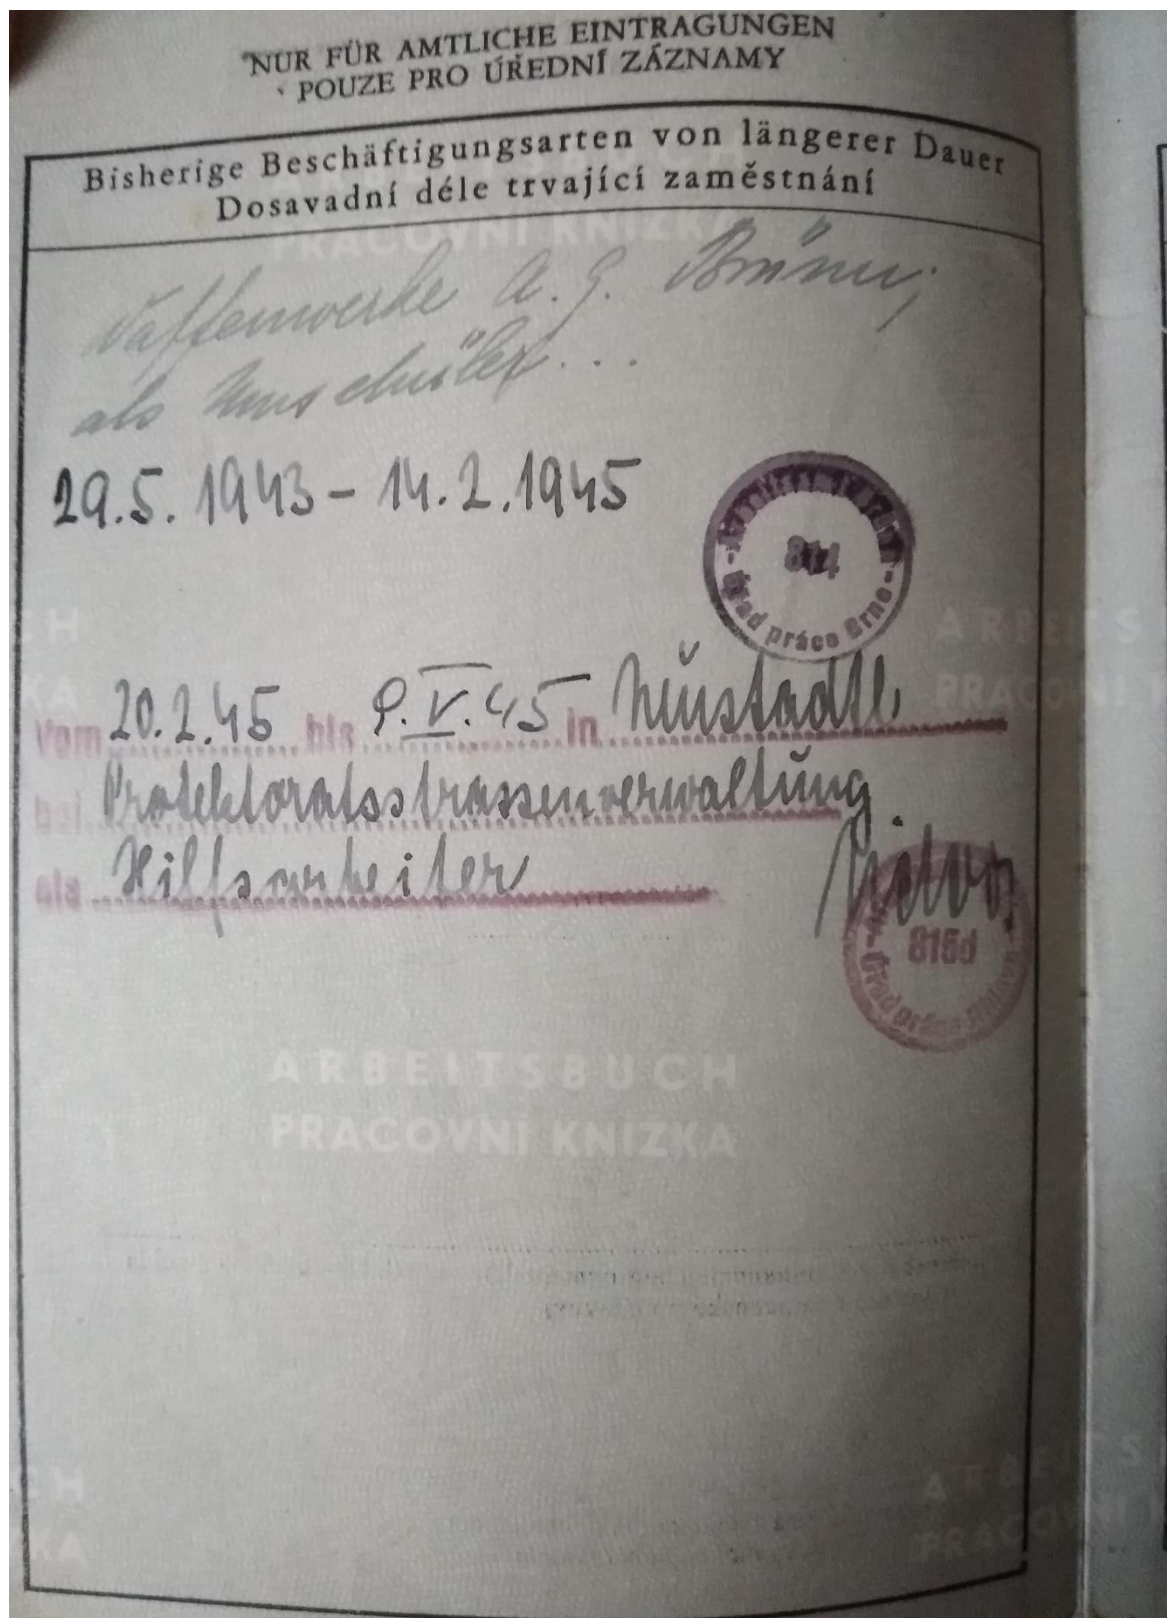 NUR FÜR AMTLICHE EINTRAGUNGEN
POUZE PRO ÚŘEDNÍ ZÁZNAMY
Bisherige Beschäftigungsarten von längerer Dauer
Dosavadní déle trvající zaměstnání
Waffenwerke A. G. Brünn,
als Umschüler...
29.5.1943 - 14.2.1945
814
Úřad práce Brno
Vom 20.2.45 bis 9.V.45 in Neustadtl.
bei Protektoratsstrassenverwaltung
als Hilfsarbeiter
815d
Úřad práce
ARBEITSBUCH
PRACOVNÍ KNÍŽKA